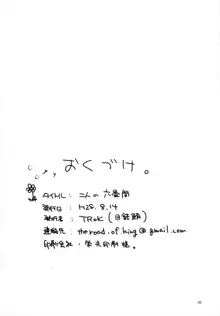 おくづけ。
タイトル：二人の六畳間
発行日：H28.8.14
発行者：TRcK (@鉄鎖)
連絡先：the.road.of.king@gmail.com
印刷会社：栄光印刷様。